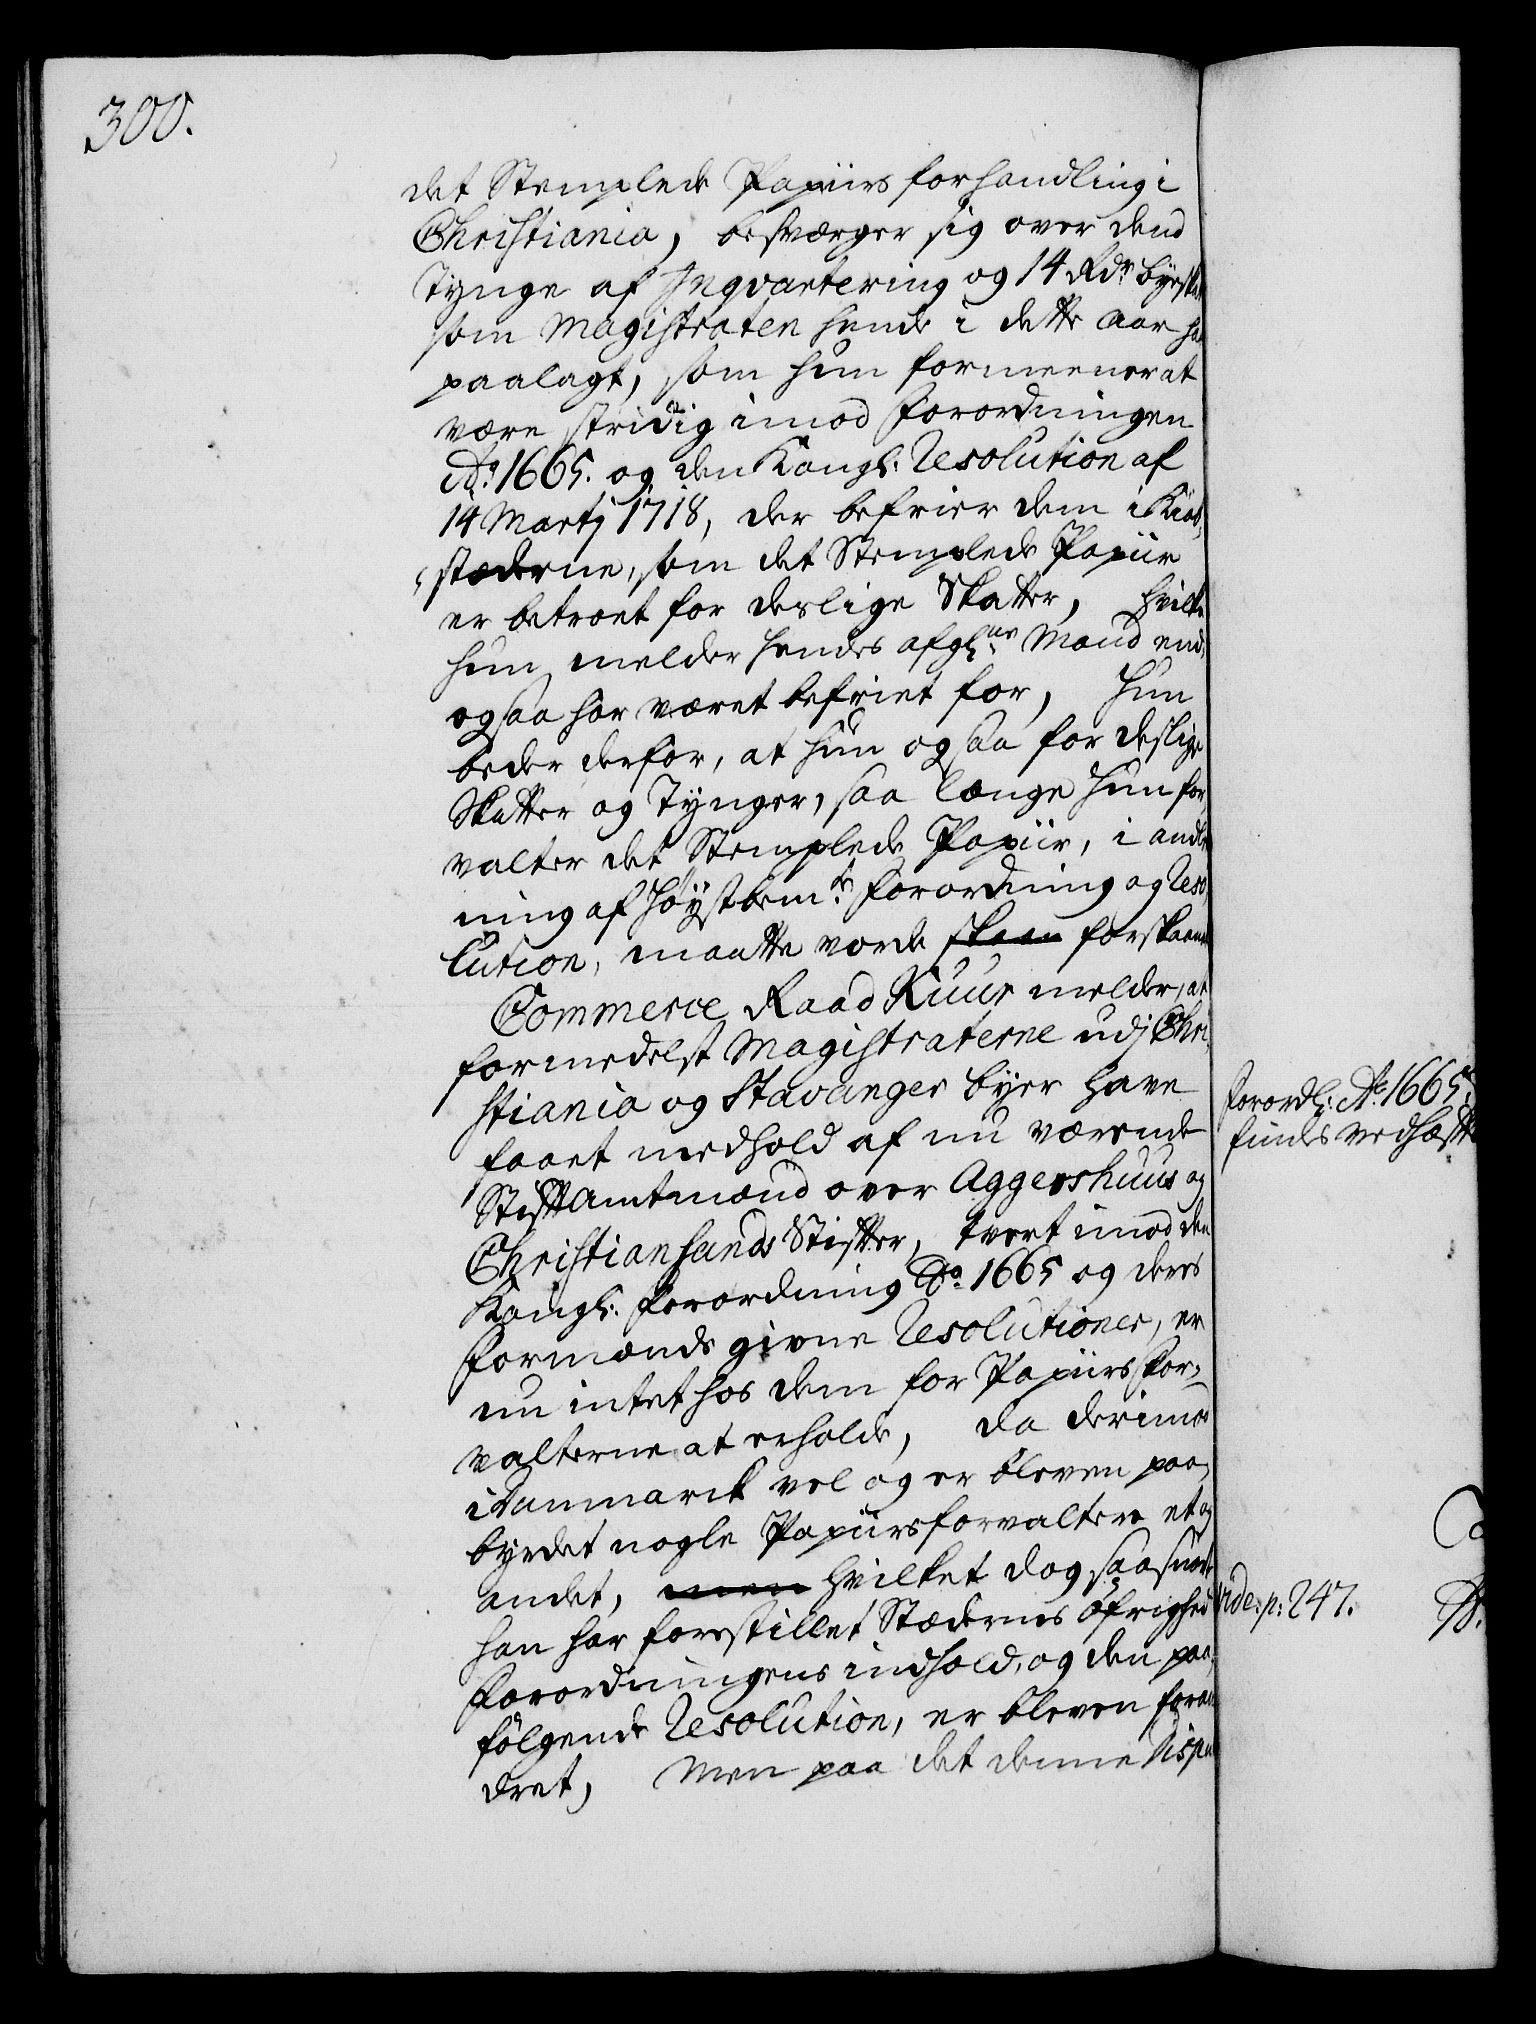 300.
det Stemplede Papiirs forhandling i
Christiania, besværger sig over dend
Tynge af Inqvartering og 14 Rdr byeskat
som Magistraten hende i dette Aar har
paalagt, som hun formeener at
være stridig imod Forordningen
Ao. 1665. og den Kongl: Resolution af
14 Martij 1718, der befrier dem i Kiøb„
„stæderne, som det Stemplede Papiir
er betroet for deslige Skatter, hvilke
hun melder hendes afgl:ne Mand end„
ogsaa har været befriet for, Hun
beder derfor, at hun ogsaa for deslige
Skatter og Tynger, saa længe hun for
valter det Stemplede Papiir, i anled
ning af Høystbem:te Forordning og Reso„
lution, maatte vorde forskaanet
Commerce Raad Kuur melder, at
formedelst Magistraterne udj Chri„
stiania og Stavanger byer have
faaet medhold af nu værende
Stiftamtmænd over Aggershuus og
Christiansands Stifter, tvert imod den
Kongl: Forordning Ao. 1665 og deres
Formænds givne Resolutioner, er
nu intet hos dem for Papiirs For„
valterne at erholde, da derimod
i Danmarck vel og er bleven paa„
byrdet nogle Papiirsforvaltere et og
andet, men hvilket dog saasnart
han har forestillet Stædernes Øfrighed
Forordningens indhold, og den paa„
følgende Resolution, er bleven foran
dret, Men paa det denne Dispu
Forordn: Ao. 1665.
findes vedhæftet
vide: p: 247.